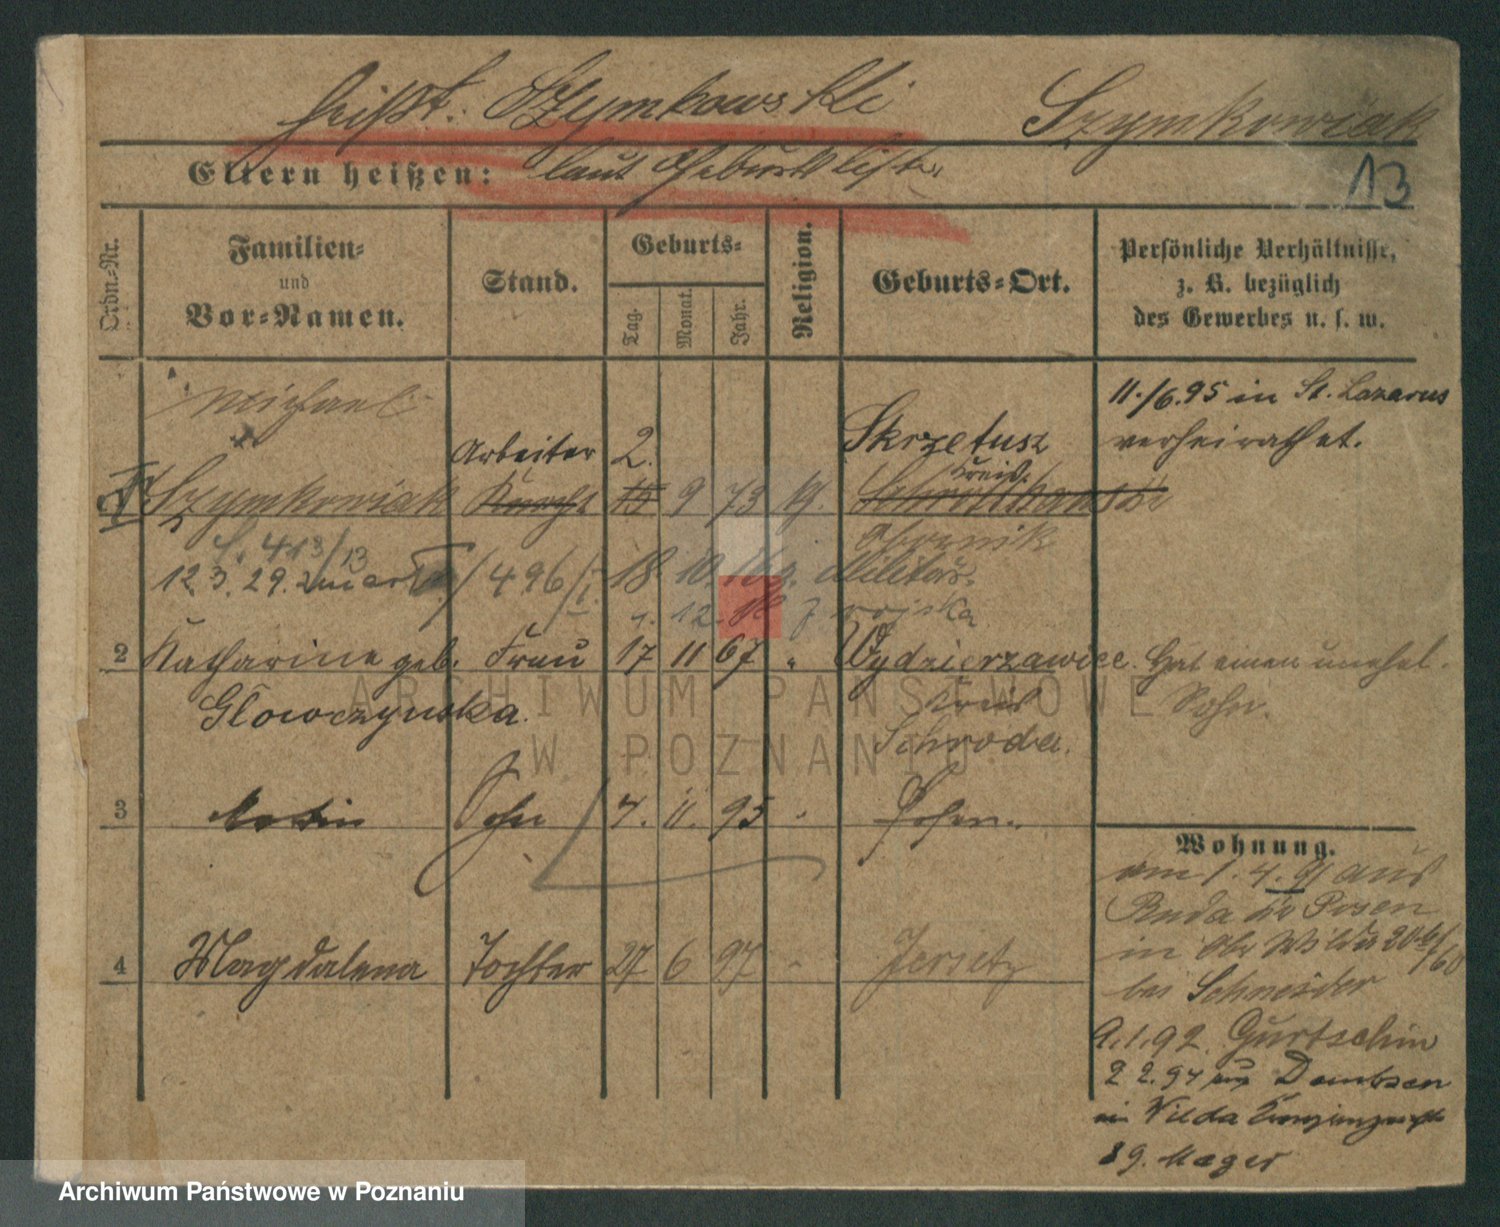 heißt: Szymkowski Szymkowiak
Eltern heißen: laut Geburtsliste. 13
Ordn.-Nr.
Familien- und Vor-Namen.
Stand.
Geburts-
Tag. Monat. Jahr.
Religion.
Geburts-Ort.
Persönliche Verhältnisse, z. B. bezüglich des Gewerbes u. s. w.
Michael
11./6.95 in St. Lazarus
verheirathet.
Arbeiter 2. Skrzetusz
1 Szymkowiak Knecht 15 9 73 k. Kreis
Obornik
413/13
12.3.29. zmarł /496/I. 18. 10. Militär.
1. 12. wojska
2 Katharine geb. Frau 17 11 67 " Wydzierzawice. Hat einen unehel.
Glowczynska. Kreis Sohn.
Schroda.
3 Martin Sohn 7. 11. 95 " Posen.
Wohnung.
am 1. 4. 91 aus
Ruda bei Posen
in Ober Wilda 20
bei Schneider
4 Magdalena Tochter 27 6 97 " Jersitz
9.1.92. Gurtschin
2 2.94 aus Dembsen
in Wilda
89. Mager
ARCHIWUM PAŃSTWOWE
W POZNANIU
Archiwum Państwowe w Poznaniu